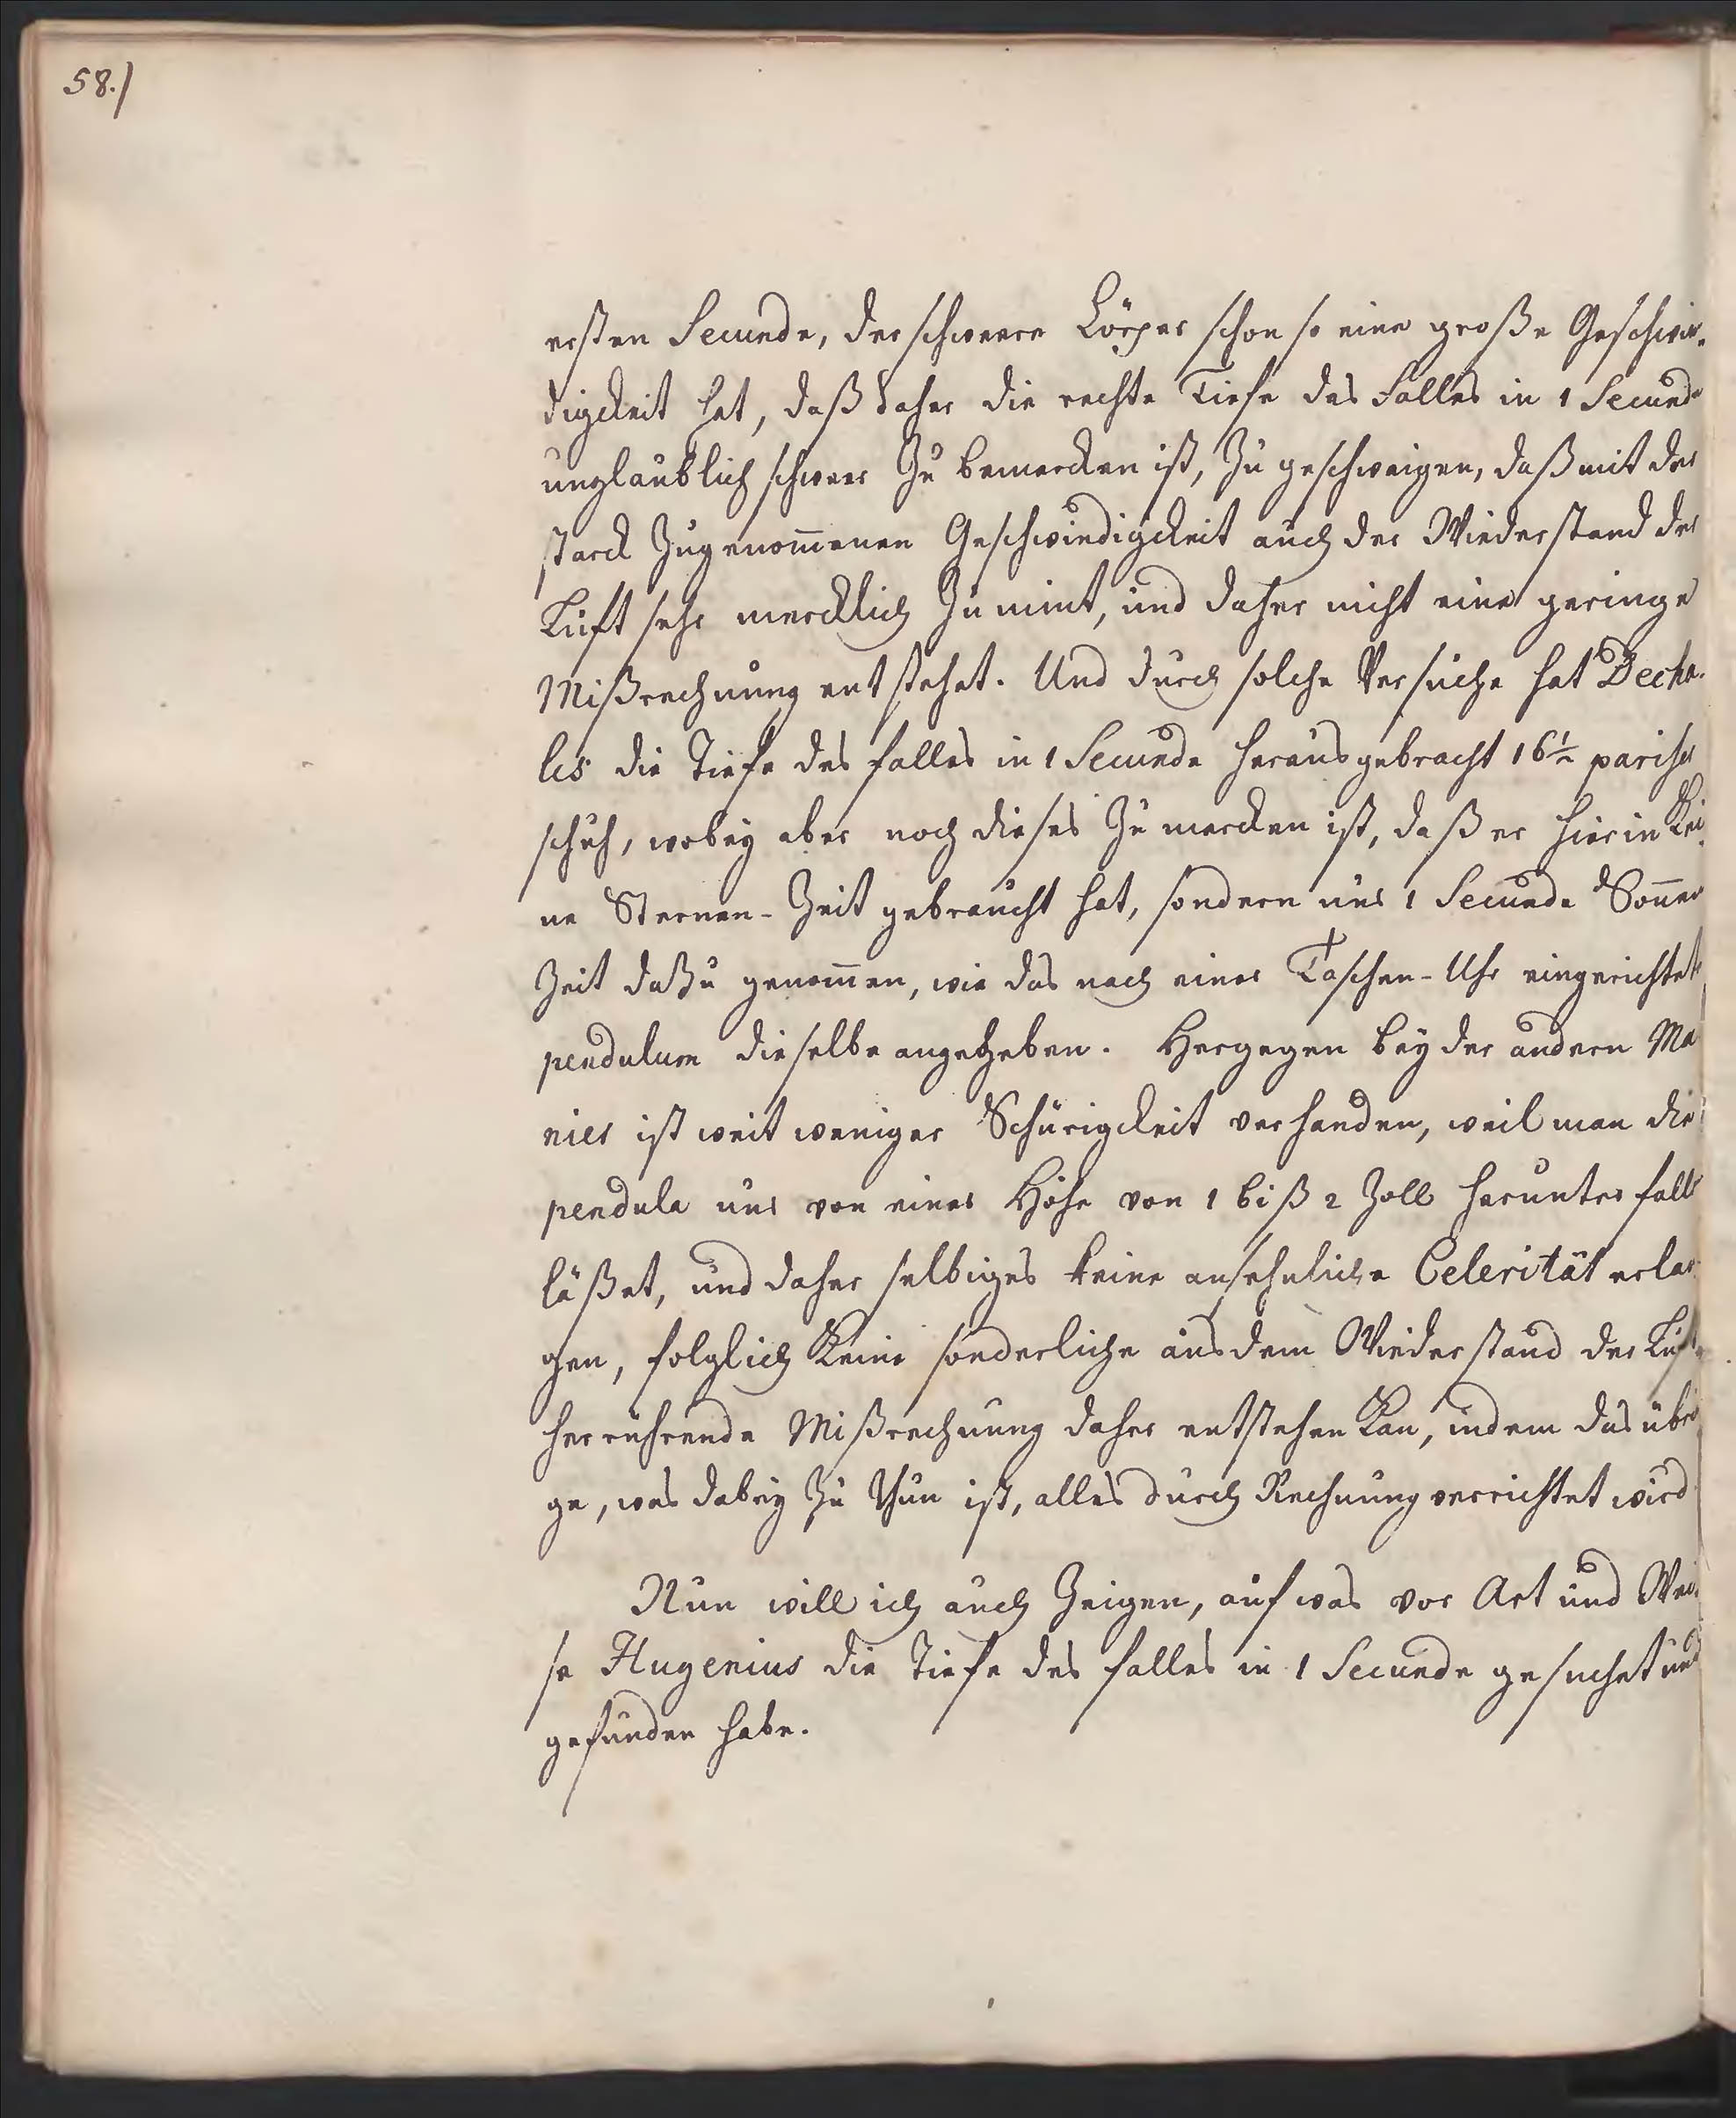 58.)
ersten Secunde, der schweere Cörper schon so eine große Geschwin-
digckeit hat, daß daher die rechte Tiefe des Falles in 1 Secunde
unglaublich schwer zu bemercken ist, zu geschweigen, daß mit der
starck zugenom̅enen Geschwindigckeit auch der Wiederstand der
Luft sehr mercklich zunimt, und daher nicht eine geringe
Mißrechnung entstehet. Und durch solche Versuche hat Decha-
les die Tiefe des Falles in 1 Secunde herausgebracht 16½ parisch
schuh, wobey aber noch dieses zu mercken ist, daß er hierin kei-
ne Sternen-Zeit gebraucht hat, sondern nur 1 Secunde Son̅en
Zeit dazu genom̅en, wie das nach einer Taschen-Uhr eingerichtete
pendulum dieselbe angegeben. Hergegen bey der andern Ma-
nier ist weit weniger Schürigckeit verhanden, weil man die
pendula nur von einer Höhe von 1 biß 2 Zoll herunter fallen
läßet, und daher selbiges keine ansehnliche Celerität erlan-
gen, folglich keine sonderliche aus dem Wiederstand der Luft
herrührende Mißrechnung daher entstehen kan, indem das übri-
ge, was dabey zu thun ist, alles durch Rechnung verrichtet wird
Nun will ich auch zeigen, auf was vor Art und Wei-
se Hugenius die Tiefe des Falles in 1 Secunde gesuchet und
gefunden habe.